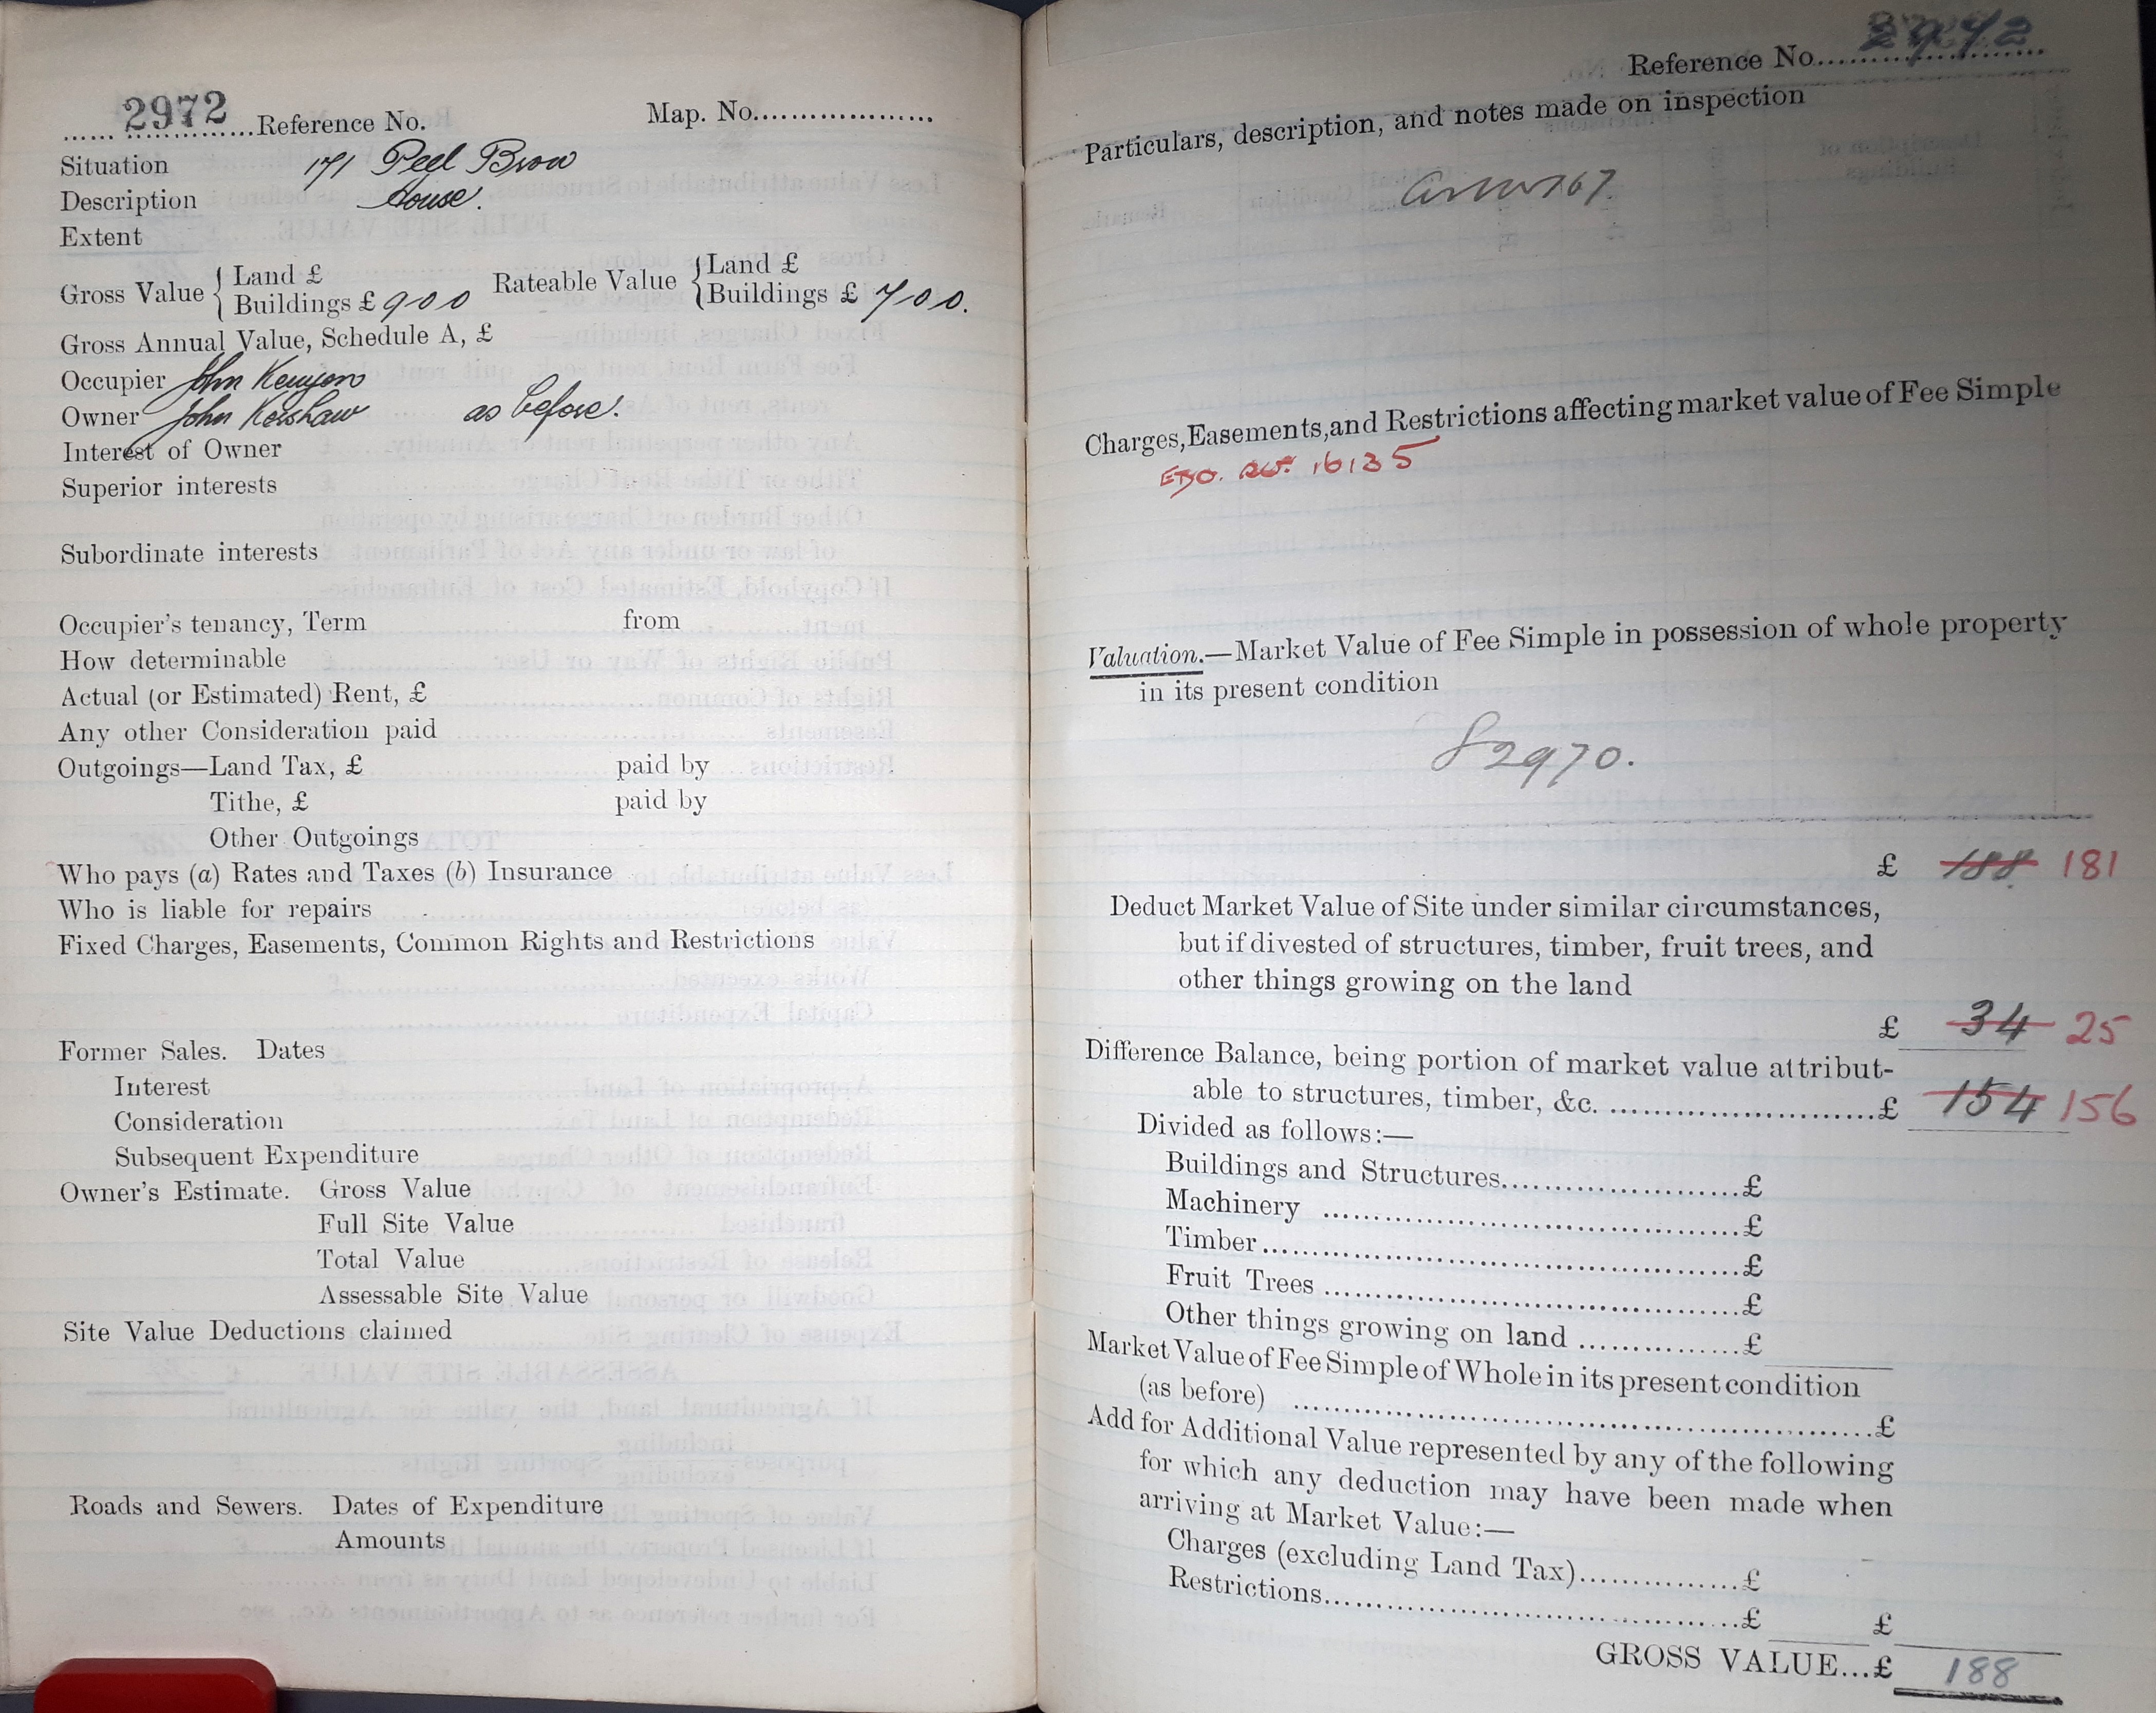 2972 Reference No. Map. No.
Situation 171 Peel Brow
Description House.
Extent
Gross Value { Land £ Rateable Value { Land £
Buildings £ 9 0 0 Buildings £ 7 0 0.
Gross Annual Value, Schedule A, £
Occupier John Kenyon
Owner John Kershaw as before.
Interest of Owner
Superior interests
Subordinate interests
Occupier's tenancy, Term from
How determinable
Actual (or Estimated) Rent, £
Any other Consideration paid
Outgoings—Land Tax, £ paid by
Tithe, £ paid by
Other Outgoings
Who pays (a) Rates and Taxes (b) Insurance
Who is liable for repairs
Fixed Charges, Easements, Common Rights and Restrictions
Former Sales. Dates
Interest
Consideration
Subsequent Expenditure
Owner's Estimate. Gross Value
Full Site Value
Total Value
Assessable Site Value
Site Value Deductions claimed
Roads and Sewers. Dates of Expenditure
Amounts
Reference No.
Particulars, description, and notes made on inspection
167.
Charges, Easements, and Restrictions affecting market value of Fee Simple
16135
Valuation.—Market Value of Fee Simple in possession of whole property
in its present condition
2970.
£ 188. 181
Deduct Market Value of Site under similar circumstances,
but if divested of structures, timber, fruit trees, and
other things growing on the land
£ 34 25
Difference Balance, being portion of market value attribut-
able to structures, timber, &c. £ 154 156
Divided as follows:—
Buildings and Structures £
Machinery £
Timber £
Fruit Trees £
Other things growing on land £
Market Value of Fee Simple of Whole in its present condition
(as before) £
Add for Additional Value represented by any of the following
for which any deduction may have been made when
arriving at Market Value:—
Charges (excluding Land Tax) £
Restrictions £ £
GROSS VALUE...£ 188